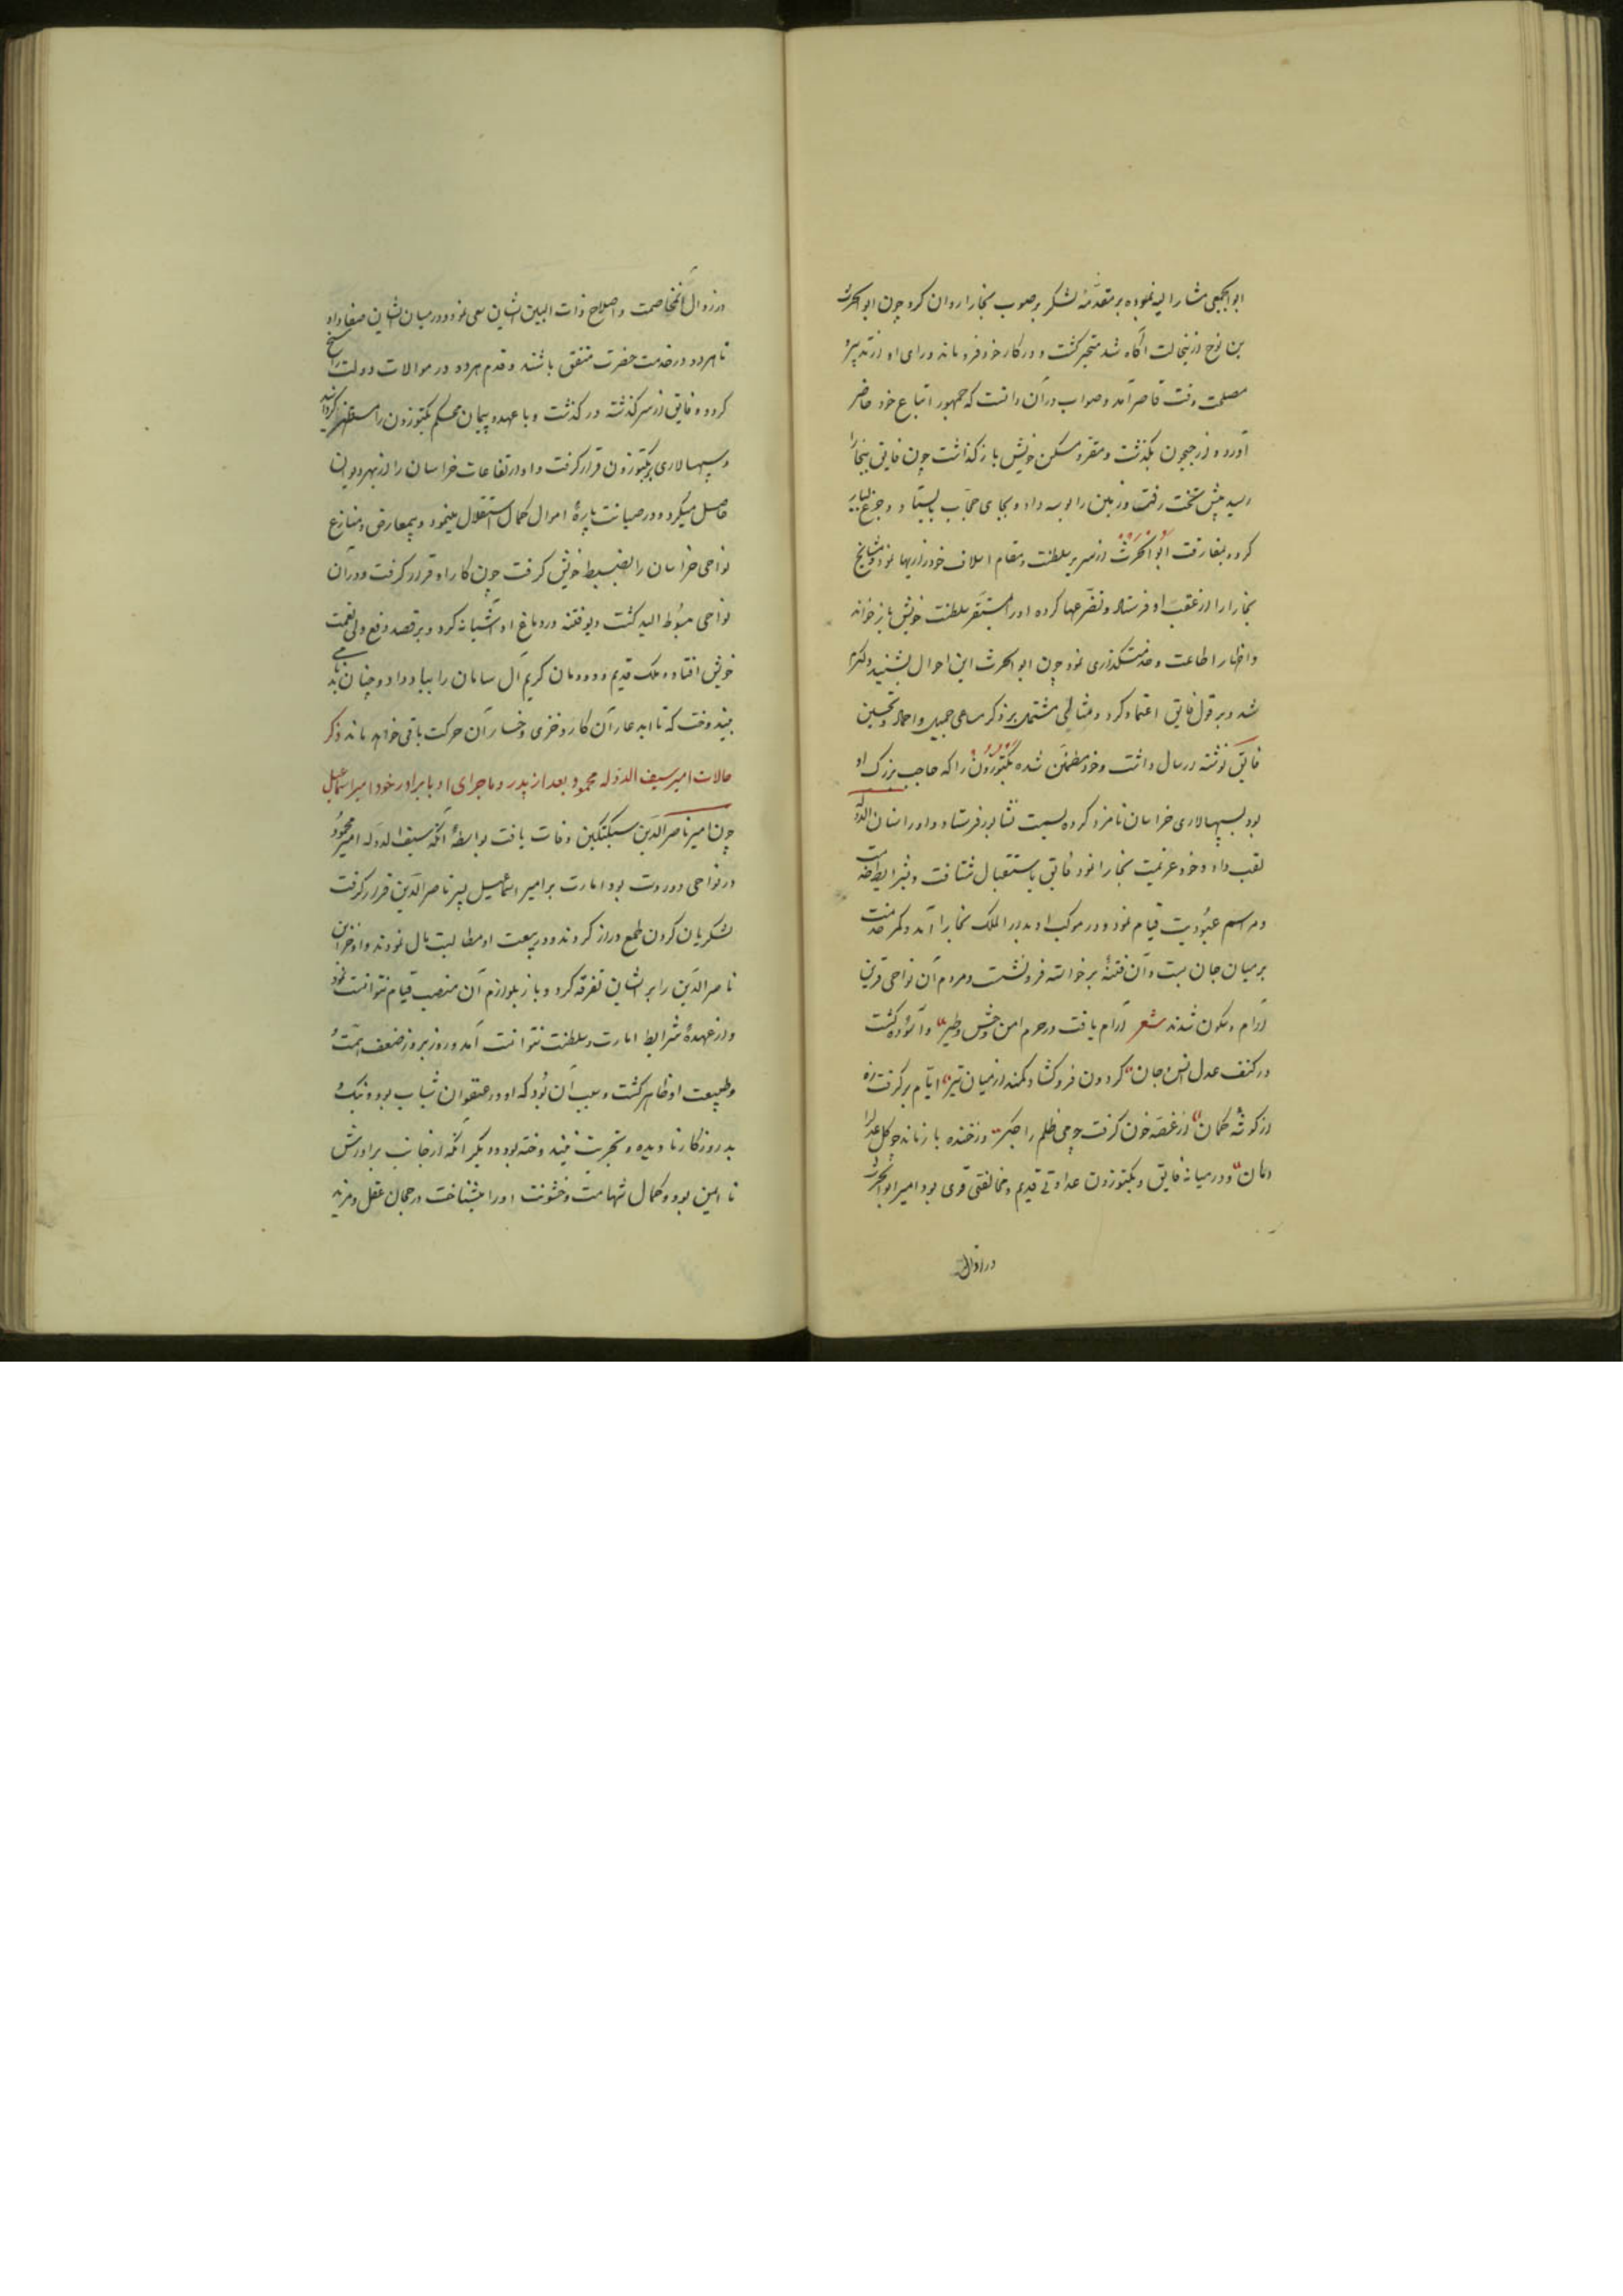 ابوالجمعی مشار الیه نموده بر مقدمهٔ لشکر بر صوب بخارا روان کرد چون ابوالحرث
بن نوح ازین حالت آگاه شد متحیر کشت و در کار خود فرو ماند و رای او از تدبیر
مصلحت وقت قاصر آمد و صواب در آن دانست که جمهور اتباع خود حاضر
آورد و از جیحون بگذشت و مقر و مسکن خویش باز گذاشت چون فایق ببخارا
رسید پیش تخت رفت و زمین را بوسه داد و بجای حجاب بایستاد و جزع بسیار
کرد و بمفارقت ابوالحرث از سریر سلطنت و مقام اسلاف خود زاریها نمود و مشایخ
بخارا را از عقب او فرستاد و تضرعها کرده او را بمستقر سلطنت خویش باز خواند
و اظهار اطاعت و خدمتکذاری نمود چون ابوالحرث این احوال بشنید دلکرم
شد و بر قول فایق اعتماد کرد و مثالی مشتمل بر ذکر مساعی جمیل و احماد و تحسین
فایق نوشته ارسال داشت و خود مطمئن شده بکتوزون را که حاجب بزرک او
بود بسپهسالاری خراسان نامزد کرده بسمت نشابور فرستاد و او را سنان الدوله
لقب داد و خود عزیمت بخارا نمود فایق باستقبال شتافت و شرایط خدمت
و مراسم عبودیت قیام نمود و در موکب او بدار الملک بخارا آمد و کمر خدمت
بر میان جان بست و آن فتنهٔ برخواسته فرو نشست و مردم آن نواحی قرین
آرام و سکون شدند شعر آرام یافت در حرم امن وحش و طیر و آسوده کشت
در کنف عدل انس و جان کردون فرو کشاد کمند از میان تیر ایام بر کرفت زه
از کوشهٔ کمان از غصه خون کرفت چو می ظلم را جکر وز خنده باز ماند چو کل عدل را
دهان و در میانهٔ فایق و بکتوزون عداوتی قدیم و مخالفتی قوی بود امیر ابوالحرث
در ازوال
در زوال آن مخاصمت و اصلاح ذات البین ایشان سعی نمود و در میان ایشان صفا داد
تا هر دو در خدمت حضرت متفق باشند و قدم هر دو در موالات دولت راسخ
کردد و فایق از سر کذشته در کذشت و با عهد و پیمان محکم بکتوزون را مستظهر کردانید
و سپهسالاری بر بکتوزون قرار کرفت و او ارتفاعات خراسان را از بهر دیوان
حاصل میکرد و در صیانت پارهٔ اموال کمال استقلال مینمود و بیمعارض و منازع
نواحی خراسان را بضبط خویش کرفت چون کار او قرار کرفت و در آن
نواحی مبسوط الید کشت دیو فتنه در دماغ او آشیانه کرد و بر قصد دفع ولی نعمت
خویش افتاد و ملک قدیم و دودمان کریم آل سامان را بباد داد و چنان بدنامی
بیندوخت که تا ابد عار آن کار و خزی و خسار آن حرکت باقی خواهد ماند ذکر
حالات امیر سیف الدوله محمود بعد از پدر و ماجرای او با برادر خود امیر اسماعیل
چون امیر ناصر الدین سبکتکین وفات یافت بواسطهٔ آنکه سیف الدوله امیر محمود
در نواحی دور دست بود امارت بر امیر اسماعیل پسر ناصر الدین قرار کرفت
لشکریان کردن طمع دراز کردند و در بیعت او مطالبت مال نمودند و او خزاین
ناصر الدین را بر ایشان تفرقه کرد و باز بلوازم آن منصب قیام نتوانست نمود
و از عهدهٔ شرایط امارت و سلطنت نتوانست آمد و روز بروز ضعف همت
و طبیعت او ظاهر کشت و سبب آن بود که او در عنفوان شباب بود و نیک و
بد روزکار نادیده و تجربت نیندوخته بود و دیکر آنکه از جانب برادرش
نا ایمن بود و کمال شهامت و خشونت او را میشناخت و رجحان عقل و مزید